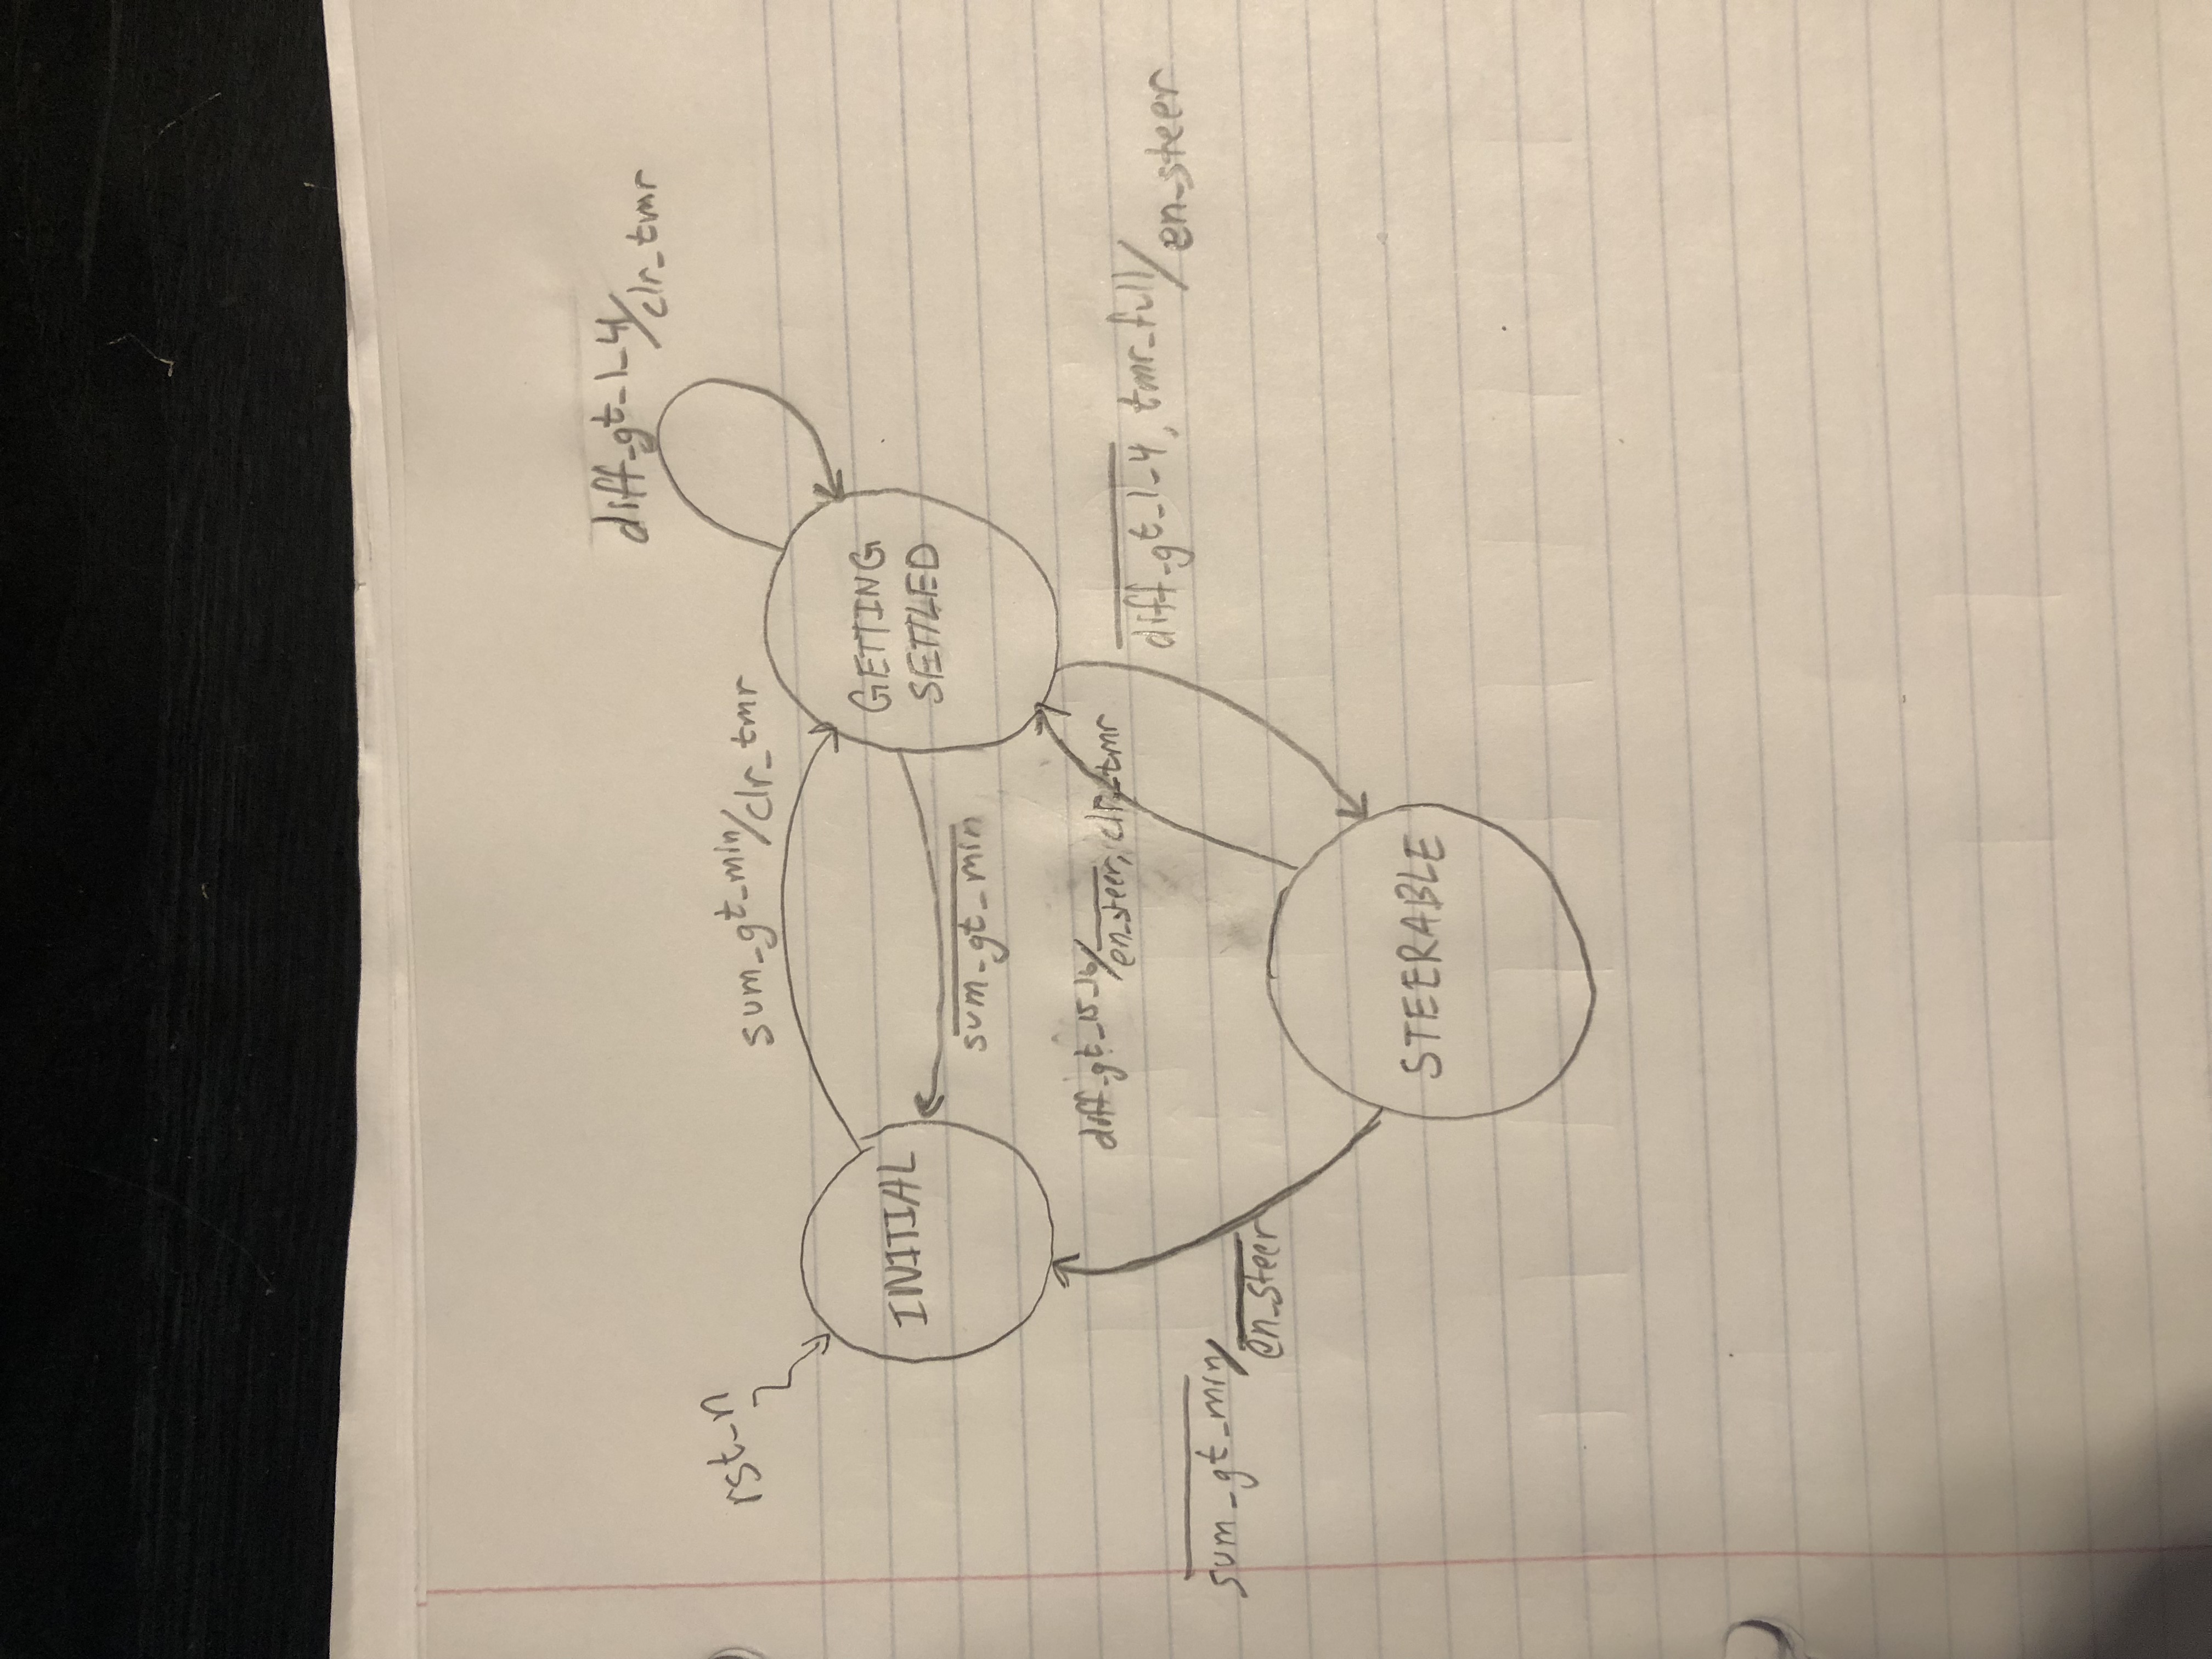 diff_gt_1_4/clr_tmr
rst_n
sum_gt_min/clr_tmr
INITIAL
GETTING
SETTLED
sum_gt_min
diff_gt_15_16/en_steer, clr_tmr
diff_gt_1_4, tmr_full/en_steer
sum_gt_min/en_steer
STEERABLE